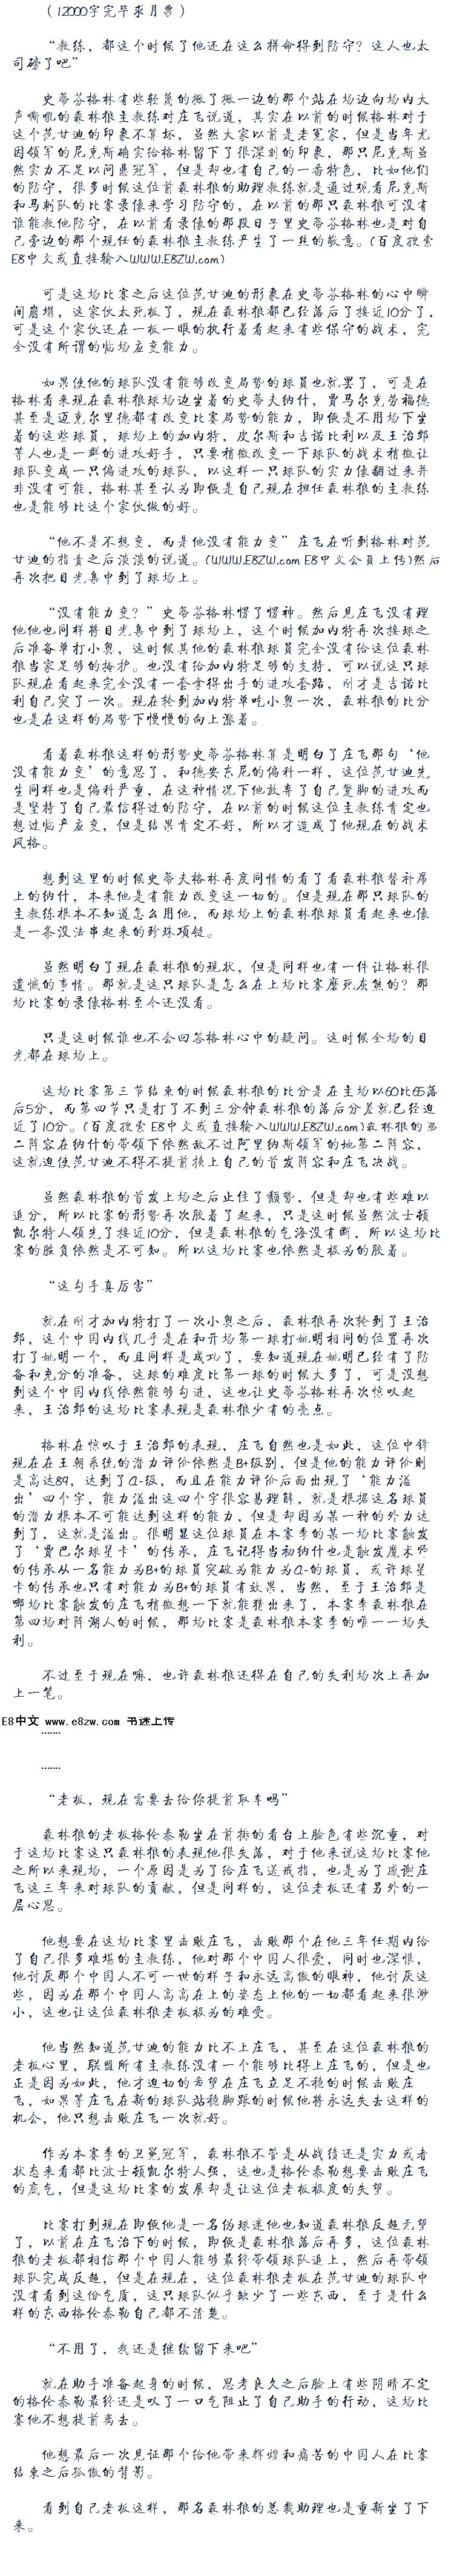 （12000字完毕求月票）
“教练，都这个时候了他还在这么拼命得到防守？这人也太
司磅了吧”
史蒂芬格林有些轻蔑的撇了撇一边的那个站在场边向场内大
声嘶吼的森林狼主教练对庄飞说道，其实在以前的时候格林对于
这个范甘迪的印象不算坏，虽然大家以前是老冤家，但是当年尤
因领军的尼克斯确实给格林留下了很深刻的印象，那只尼克斯虽
然实力不足以问鼎冠军，但是却也有自己的一番特色，比如他们
的防守，很多时候这位前森林狼的助理教练就是通过观看尼克斯
和马刺队的比赛录像来学习防守的，在以前的那只森林狼可没有
谁能教他防守，在以前看录像的那段日子里史蒂芬格林也是对自
己旁边的那个现任的森林狼主教练产生了一丝的敬意。(百度搜索
E8中文或直接输入WWW.E8ZW.com)
可是这场比赛之后这位范甘迪的形象在史蒂芬格林的心中瞬
间崩塌，这家伙太死板了，现在森林狼都已经落后了接近10分了，
可是这个家伙还在一板一眼的执行着看起来有些保守的战术，完
全没有所谓的临场应变能力。
如果使他的球队没有能够改变局势的球员也就罢了，可是在
格林看来现在森林狼场边坐着的史蒂夫纳什，贾马尔克劳福德
甚至是迈克尔里德都有改变比赛局势的能力，即便是不用场下坐
着的这些球员，球场上的加内特，皮尔斯和吉诺比利以及王治郅
等人也是一群的进攻好手，只要稍微改变一下球队的战术稍微让
球队变成一只偏进攻的球队，以这样一只球队的实力像翻过来并
非没有可能，格林甚至认为即便是自己现在担任森林狼的主教练
也是能够比这个家伙做的好。
“他不是不想变，而是他没有能力变”庄飞在听到格林对范
甘迪的指责之后淡淡的说道。(WWW.E8ZW.com E8中文会员上传)然后
再次把目光集中到了球场上。
“没有能力变？”史蒂芬格林愣了愣神。然后见庄飞没有理
他他也同样将目光集中到了球场上，这个时候加内特再次接球之
后准备单打小奥，这时候其他的森林狼球员完全没有给这位森林
狼当家足够的掩护。也没有给加内特足够的支持，可以说这只球
队现在看起来完全没有一套拿得出手的进攻套路，刚才是吉诺比
利自己突了一次。现在轮到加内特单吃小奥一次，森林狼的比分
也是在这样的局势下慢慢的向上涨着。
看着森林狼这样的形势史蒂芬格林算是明白了庄飞那句‘他
没有能力变’的意思了，和德安东尼的偏科一样，这位范甘迪先
生同样也是偏科严重，在这种情况下他放弃了自己蹩脚的进攻而
是坚持了自己最信得过的防守，在以前的时候这位主教练肯定也
想过临产应变，但是结果肯定不好，所以才造成了他现在的战术
风格。
想到这里的时候史蒂夫格林再度同情的看了看森林狼替补席
上的纳什，本来他是有能力改变这一切的。但是现在那只球队的
主教练根本不知道怎么用他，而球场上的森林狼球员看起来也像
是一条没法串起来的珍珠项链。
虽然明白了现在森林狼的现状，但是同样也有一件让格林很
遗憾的事情。那就是这只球队是怎么在上场比赛磨死灰熊的？那
场比赛的录像格林至今还没看。
只是这时候谁也不会回答格林心中的疑问。这时候全场的目
光都在球场上。
这场比赛第三节结束的时候森林狼的比分是在主场以60比65落
后5分，而第四节只是打了不到三分钟森林狼的落后分差就已经迫
近了10分。(百度搜索 E8中文或直接输入WWW.E8ZW.com)森林狼的第
二阵容在纳什的带领下依然敌不过阿里纳斯领军的地第二阵容，
这就迫使范甘迪不得不提前换上自己的首发阵容和庄飞决战。
虽然森林狼的首发上场之后止住了颓势，但是却也有些难以
追分，所以比赛的形势再次胶着了起来，只是这时候虽然波士顿
凯尔特人领先了接近10分，但是森林狼的气海没有断，所以这场比
赛的胜负依然是不可知。所以这场比赛也依然是极为的胶着。
“这勾手真厉害”
就在刚才加内特打了一次小奥之后，森林狼再次轮到了王治
郅，这个中国内线几乎是在和开场第一球打姚明相同的位置再次
打了姚明一个，而且同样是成功了，要知道现在姚明已经有了防
备和充分的准备，这球的难度比第一球的时候大多了，可是没想
到这个中国内线依然能够勾进，这也让史蒂芬格林再次惊叹起
来，王治郅的这场比赛表现是森林狼少有的亮点。
格林在惊叹于王治郅的表现，庄飞自然也是如此，这位中锋
现在在王朝系统的潜力评价依然是B+级别，但是他的能力评价则
是高达89，达到了A-级，而且在能力评价后面出现了‘能力溢
出’四个字，能力溢出这四个字很容易理解，就是根据这名球员
的潜力根本不可能达到这样的能力，但是却因为某一种的外力达
到了，这就是溢出。很明显这位球员在本赛季的某一场比赛触发
了‘贾巴尔球星卡’的传承，庄飞记得当初纳什也是触发魔术师
的传承从一名能力为B+的球员突破为能力为A-的球员，或许球星
卡的传承也只有对能力为B+的球员有效果，当然，至于王治郅是
哪场比赛触发的庄飞稍微想一下就能猜出来了，本赛季森林狼在
第四场对阵湖人的时候，那场比赛是森林狼本赛季的唯一一场失
利。
不过至于现在嘛，也许森林狼还得在自己的失利场次上再加
上一笔。
E8中文 www.e8zw.com 书迷上传
……
……
“老板，现在需要去给你提前取车吗”
森林狼的老板格伦泰勒坐在前排的看台上脸色有些沉重，对
于这场比赛这只森林狼的表现他很失落，对于他来说这场比赛他
之所以来现场，一个原因是为了给庄飞送戒指，也是为了感谢庄
飞这三年来对球队的贡献，但是同样的，这位老板还有另外的一
层心思。
他想要在这场比赛里击败庄飞，击败那个在他三年任期内给
了自己很多难堪的主教练，他对那个中国人很爱，同时也深恨，
他讨厌那个中国人不可一世的样子和永远高傲的眼神，他讨厌这
些，因为在那个中国人高高在上的姿态上他的一切都看起来很渺
小，这也让这位森林狼老板极为的难受。
他当然知道范甘迪的能力比不上庄飞，甚至在这位森林狼的
老板心里，联盟所有主教练没有一个能够比得上庄飞的，但是也
正是因为如此，他才迫切的希望在庄飞立足不稳的时候击败庄
飞，如果等庄飞在新的球队站稳脚跟的时候他将永远失去这样的
机会，他只想击败庄飞一次就好。
作为本赛季的卫冕冠军，森林狼不管是从战绩还是实力或者
状态来看都比波士顿凯尔特人强，这也是格伦泰勒想要击败庄飞
的底气，但是这场比赛的发展却是让这位老板极度的失望。
比赛打到现在即便他是一名伪球迷他也知道森林狼反超无望
了，以前在庄飞治下的时候，即便是森林狼落后再多，这位森林
狼的老板都相信那个中国人能够最终带领球队追上，然后再带领
球队完成反超，但是在现在，这位森林狼老板在范甘迪的球队中
没有看到这份气质，这只球队似乎缺少了一些东西，至于是什么
样的东西格伦泰勒自己都不清楚。
“不用了，我还是继续留下来吧”
就在助手准备起身的时候，思考良久之后脸上有些阴晴不定
的格伦泰勒最终还是叹了一口气阻止了自己助手的行动，这场比
赛他不想提前离去。
他想最后一次见证那个给他带来辉煌和痛苦的中国人在比赛
结束之后孤傲的背影。
看到自己老板这样，那名森林狼的总裁助理也是重新坐了下
来。